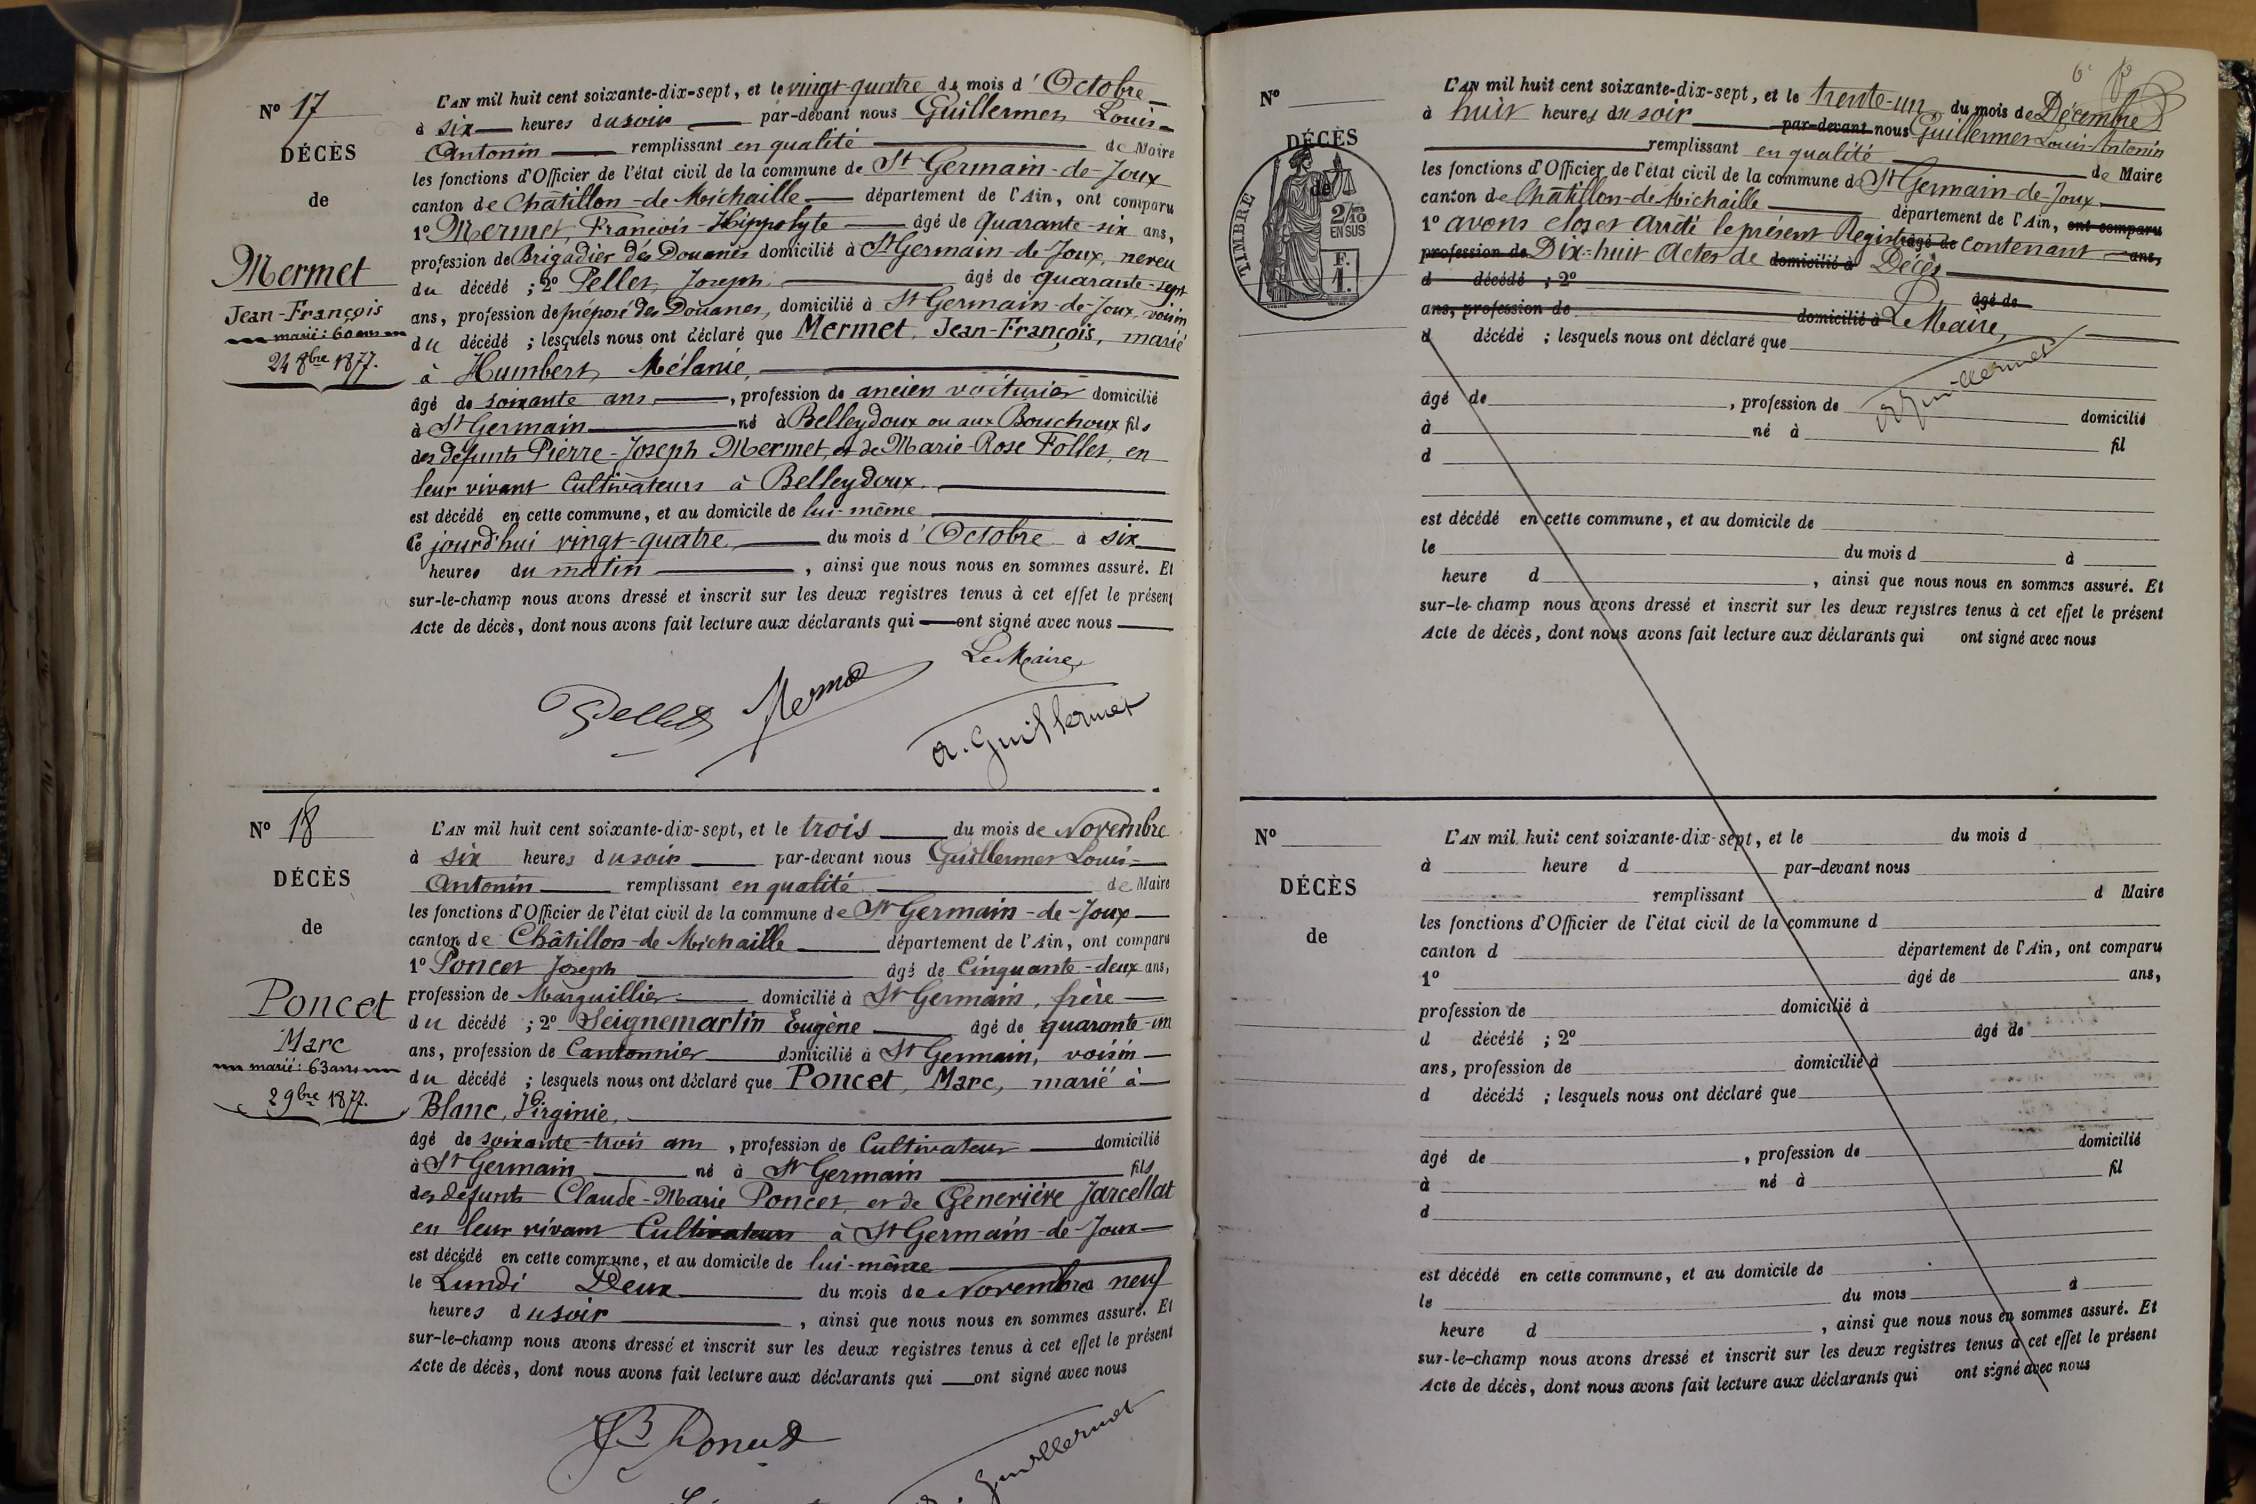 N° 17
DÉCÈS
de
Mermet
Jean-François
marié: 60 ans
24 8bre 1877.
L'AN mil huit cent soixante-dix-sept, et le vingt-quatre du mois d'Octobre
à six heures du soir par-devant nous Guillermet Louis-
Antonin remplissant en qualité de Maire
les fonctions d'Officier de l'état civil de la commune de St Germain-de-Joux
canton de Châtillon-de-Michaille département de l'Ain, ont comparu
1° Mermet, François-Hippolyte âgé de quarante-six ans,
profession de Brigadier des Douanes domicilié à St Germain-de-Joux, neveu
du décédé ; 2° Pellet, Joseph âgé de quarante-sept
ans, profession de préposé des Douanes, domicilié à St Germain-de-Joux, voisin
du décédé ; lesquels nous ont déclaré que Mermet, Jean-François, marié
à Humbert, Mélanie,
âgé de soixante ans, profession de ancien voiturier domicilié
à St Germain né à Belleydoux ou aux Bouchoux fils
des défunts Pierre-Joseph Mermet, et de Marie-Rose Follet, en
leur vivant Cultivateurs à Belleydoux.
est décédé en cette commune, et au domicile de lui-même
Ce jourd'hui vingt-quatre du mois d'Octobre à six
heures du matin, ainsi que nous nous en sommes assuré. Et
sur-le-champ nous avons dressé et inscrit sur les deux registres tenus à cet effet le présent
Acte de décès, dont nous avons fait lecture aux déclarants qui ont signé avec nous
Le Maire,
Pellet Mermet
A. Guillermet
N° 18
DÉCÈS
de
Poncet
Marc
marié: 63 ans
2 9bre 1877.
L'AN mil huit cent soixante-dix-sept, et le trois du mois de Novembre
à six heures du soir par-devant nous Guillermet Louis-
Antonin remplissant en qualité de Maire
les fonctions d'Officier de l'état civil de la commune de St Germain-de-Joux
canton de Châtillon-de-Michaille département de l'Ain, ont comparu
1° Poncet Joseph âgé de Cinquante-deux ans,
profession de Marguillier domicilié à St Germain, frère
du décédé ; 2° Seignemartin Eugène âgé de quarante-un
ans, profession de Cantonnier domicilié à St Germain, voisin
du décédé ; lesquels nous ont déclaré que Poncet, Marc, marié à
Blanc, Virginie,
âgé de soixante-trois ans, profession de Cultivateur domicilié
à St Germain né à St Germain fils
des défunts Claude-Marie Poncet, et de Geneviève Jarcellat
en leur vivant Cultivateurs à St Germain-de-Joux
est décédé en cette commune, et au domicile de lui-même
le Lundi Deux du mois de Novembre neuf
heures du soir, ainsi que nous nous en sommes assuré. Et
sur-le-champ nous avons dressé et inscrit sur les deux registres tenus à cet effet le présent
Acte de décès, dont nous avons fait lecture aux déclarants qui ont signé avec nous
Poncet
Guillermet
N°
DÉCÈS
de
TIMBRE
2/10
EN SUS
F.
1.
L'AN mil huit cent soixante-dix-sept, et le trente-un du mois de Décembre
à huit heures du soir par-devant nous Guillermet Louis-Antonin
remplissant en qualité de Maire
les fonctions d'Officier de l'état civil de la commune de St Germain-de-Joux
canton de Châtillon-de-Michaille département de l'Ain, ont comparu
1° avons clos et arrêté le présent Registre âgé de contenant ans,
profession de Dix-huit Actes de domicilié à Décès
d décédé ; 2° âgé de
ans, profession de domicilié à Le Maire,
d décédé ; lesquels nous ont déclaré que
A Guillermet
âgé de , profession de domicilié
à né à fil
d
est décédé en cette commune, et au domicile de
le du mois d à
heure d , ainsi que nous nous en sommes assuré. Et
sur-le-champ nous avons dressé et inscrit sur les deux registres tenus à cet effet le présent
Acte de décès, dont nous avons fait lecture aux déclarants qui ont signé avec nous
N°
DÉCÈS
de
L'AN mil huit cent soixante-dix-sept, et le du mois d
à heure d par-devant nous
remplissant d Maire
les fonctions d'Officier de l'état civil de la commune d
canton d département de l'Ain, ont comparu
1° âgé de ans,
profession de domicilié à
d décédé ; 2° âgé de
ans, profession de domicilié à
d décédé ; lesquels nous ont déclaré que
âgé de , profession de domicilié
à né à fil
d
est décédé en cette commune, et au domicile de
le du mois à
heure d , ainsi que nous nous en sommes assuré. Et
sur-le-champ nous avons dressé et inscrit sur les deux registres tenus à cet effet le présent
Acte de décès, dont nous avons fait lecture aux déclarants qui ont signé avec nous